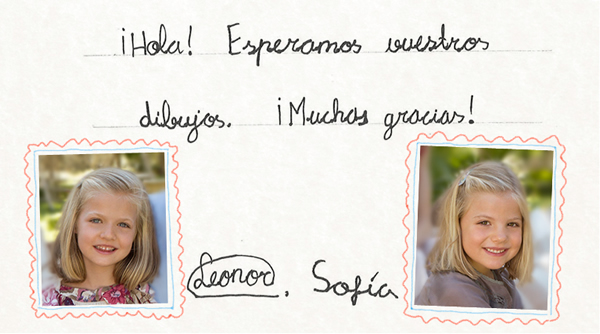 ¡Hola! Esperamos vuestros
dibujos. ¡Muchas gracias!
Leonor, Sofía